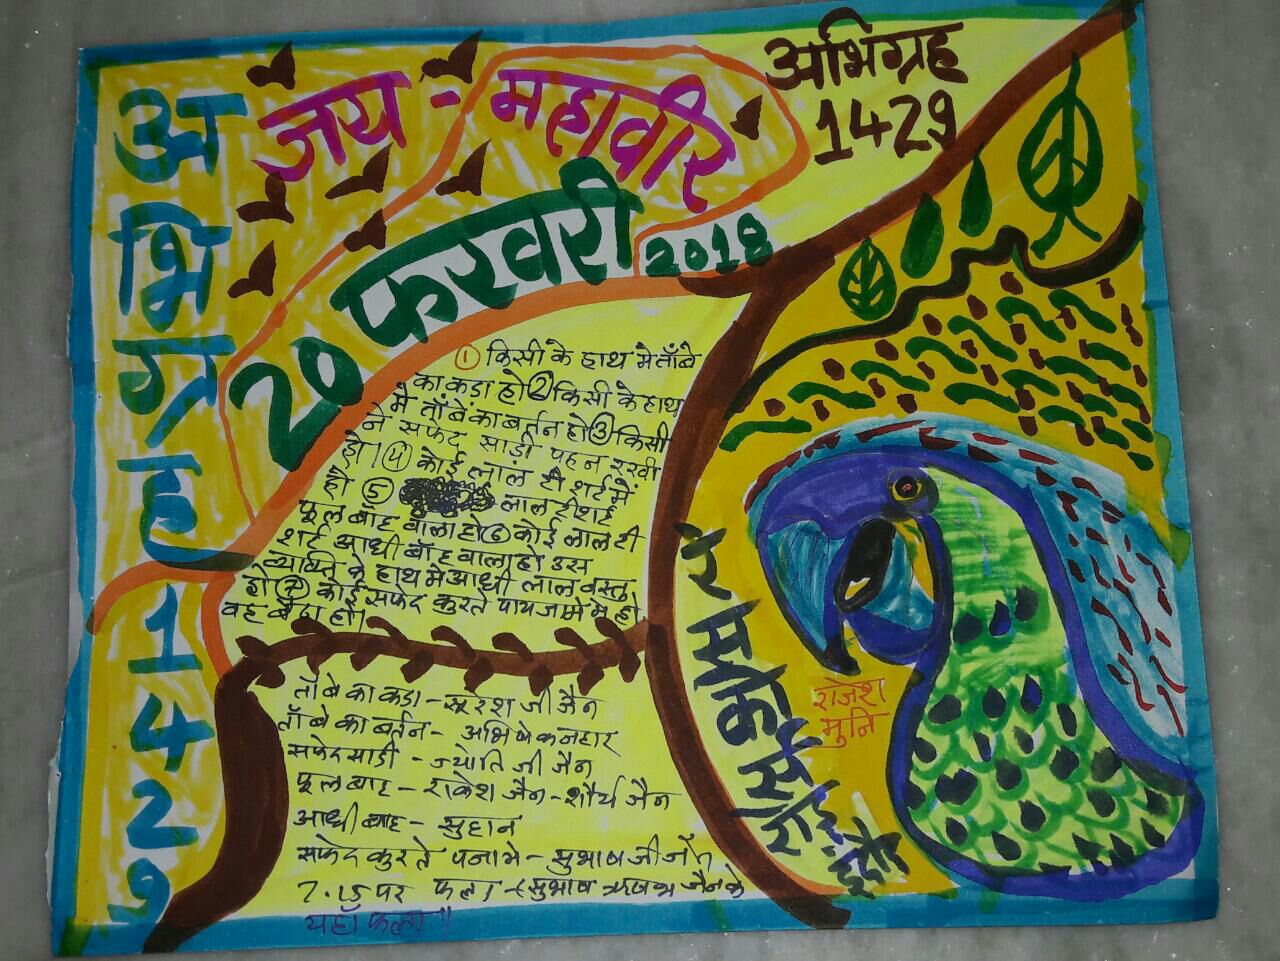 अभिग्रह
1429
जय - महावीर
20 फरवरी 2018
अभिग्रह 1429
① किसी के हाथ मे ताँबे
का कडा हो ② किसी के हाथ
मे ताँबे का बर्तन हो ③ किसी
ने सफेद साडी पहन रखी
हो। ④ कोई लाल टी शर्ट मे
हो ⑤ लाल टीशर्ट
फूल बाँह वाला हो ⑥ कोई लाल टी
शर्ट आधी बाँह वाला हो उस
व्यक्ति के हाथ मे आधी लाल वस्तु
हो ⑦ कोई सफेद कुरते पायजामे मे हो
वह बैठा हो।
ताँबे का कडा - सुरेश जी जैन
ताँबे का बर्तन - अभिषेक नहार
सफेद साडी - ज्योति जी जैन
फूल बाह - राकेश जैन - शौर्य जैन
आधी बाह - सुहान
सफेद कुरते पजामे - सुभाष जी जैन
7.15 पर फला - सुभाष ऋषभ जैन के
यहाँ फला॥
राजेश
मुनि